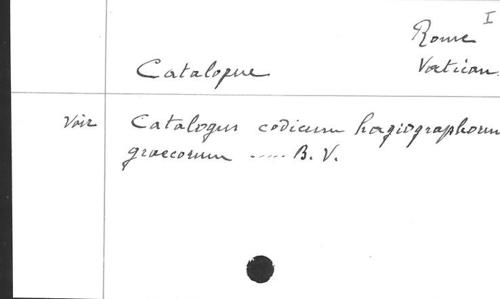 I
Rome
Catalogue Vatican.
Voir Catalogus codicum hagiographorum
graecorum ..... B. V.